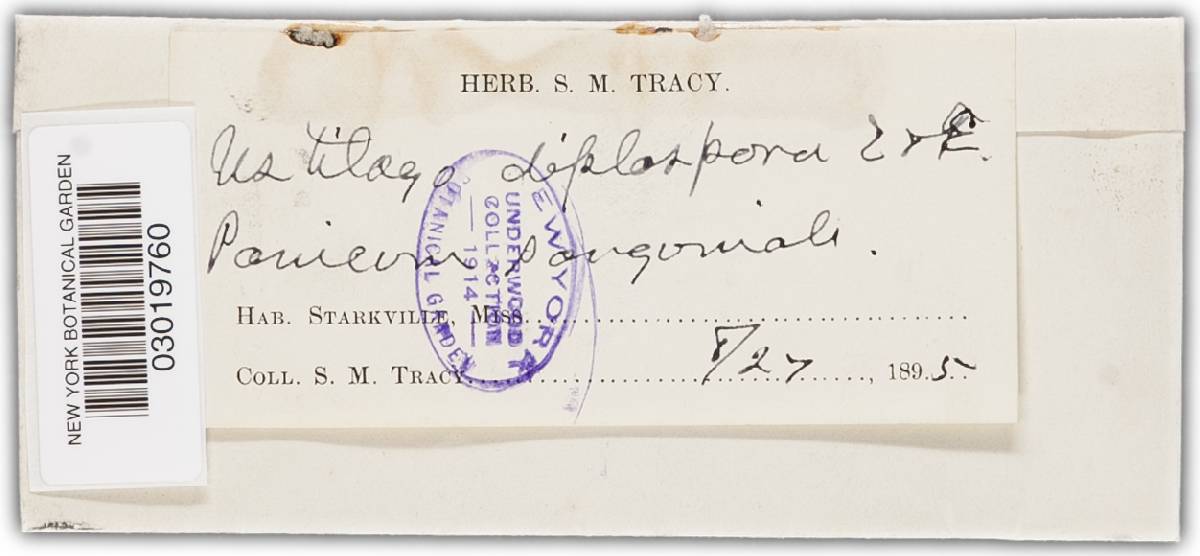 HERB. S. M. TRACY.
Ustilago diplospora E & E.
Panicum sanguinale.
HAB. STARKVILLE, MISS.
COLL. S. M. TRACY. 8/27, 1895.
NEW YORK BOTANICAL GARDEN
UNDERWOOD
COLLECTION
— 1914 —
NEW YORK BOTANICAL GARDEN
03019760